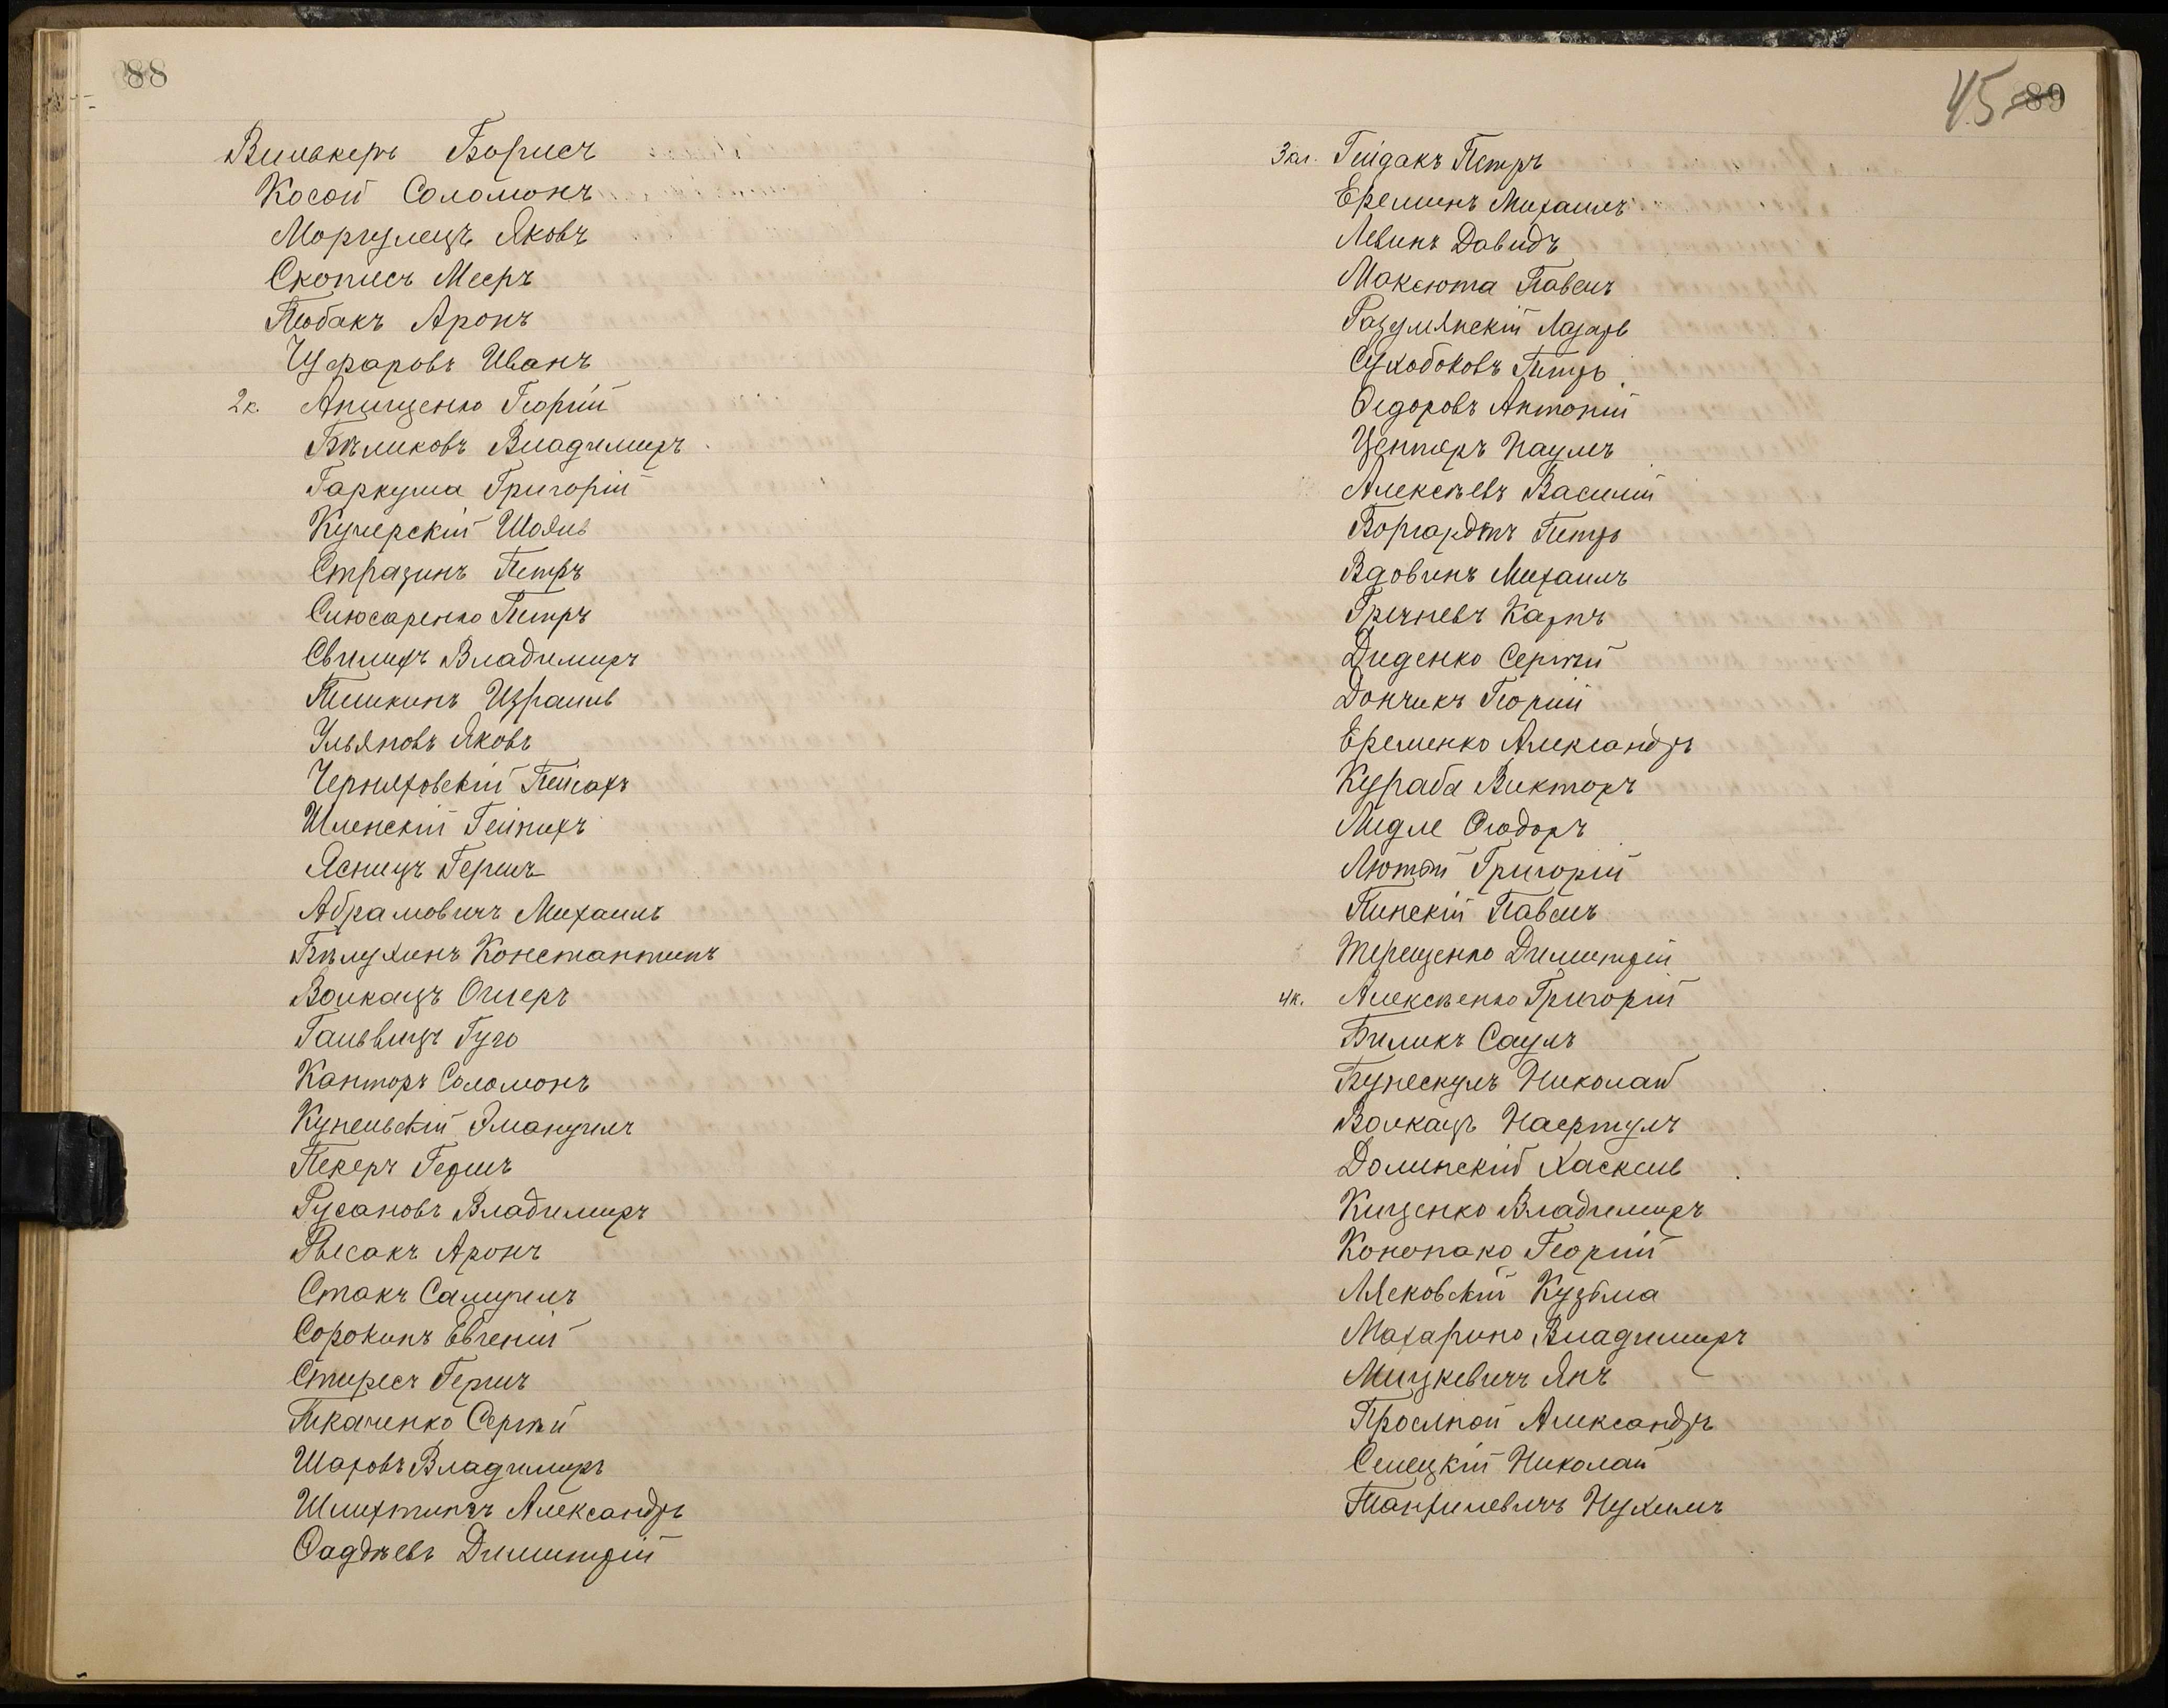 88
Вилькеръ Борисъ
Косой Соломонъ
Моргулецъ Яковъ
Скописъ Мееръ
Тюбакъ Аронъ
Цуфаровъ Иванъ
2к. Анищенко Георгій
Бѣликовъ Владимиръ
Гаркуша Григорій
Кучерскій Шоель
Стразинъ Петръ
Слюсаренко Петръ
Свирихъ Владимиръ
Темкинъ Израиль
Ульяновъ Яковъ
Черняховскій Пейсахъ
Шленскій Гейнихъ
Ясницъ Гершъ
Абрамовичъ Михаилъ
Бѣлухинъ Константинъ
Волкацъ Ошеръ
Гальвицъ Гуго
Канторъ Соломонъ
Куневскій Эмануилъ
Пекеръ Гершъ
Русановъ Владимиръ
Рысакъ Аронъ
Стакъ Самуилъ
Сорокинъ Евгеній
Стиресъ Гершъ
Ткаченко Сергѣй
Шаровъ Владимиръ
Шлихтингъ Александръ
Ѳаддѣевъ Димитрій
45 89
3кл. Гейдакъ Петръ
Ереминъ Михаилъ
Левинъ Давидъ
Максюта Павелъ
Разумянскій Лазарь
Сухобоковъ Петръ
Ѳедоровъ Антоній
Центеръ Наумъ
Алексѣевъ Василій
Боргардтъ Петръ
Вдовинъ Михаилъ
Гречневъ Карпъ
Диденко Сергѣй
Дончикъ Георгій
Еременко Александръ
Кураба Викторъ
Лидле Ѳеодоръ
Лютый Григорій
Пинскій Павелъ
Терещенко Димитрій
4к. Алексѣенко Григорій
Биликъ Саулъ
Бунескулъ Николай
Волкацъ Насртулъ
Долинскій Хаскель
Кищенко Владимиръ
Конопако Георгій
Лясковскій Кузьма
Махарино Владимиръ
Мицкевичъ Янъ
Просяной Александръ
Селецкій Николай
Танфилевичъ Нухимъ